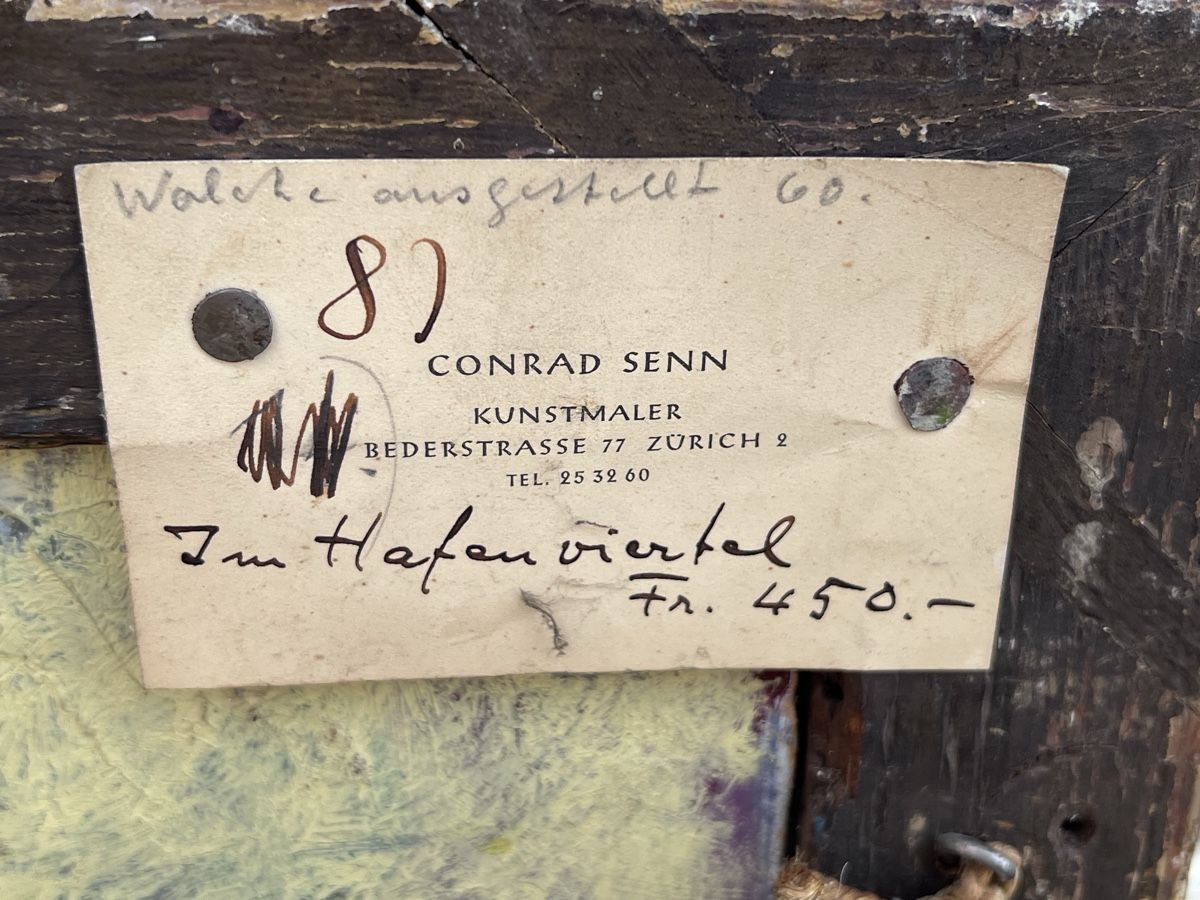 Walche ausgestellt 60.
8)
CONRAD SENN
KUNSTMALER
BEDERSTRASSE 77 ZÜRICH 2
TEL. 25 32 60
Im Hafenviertel
Fr. 450.–